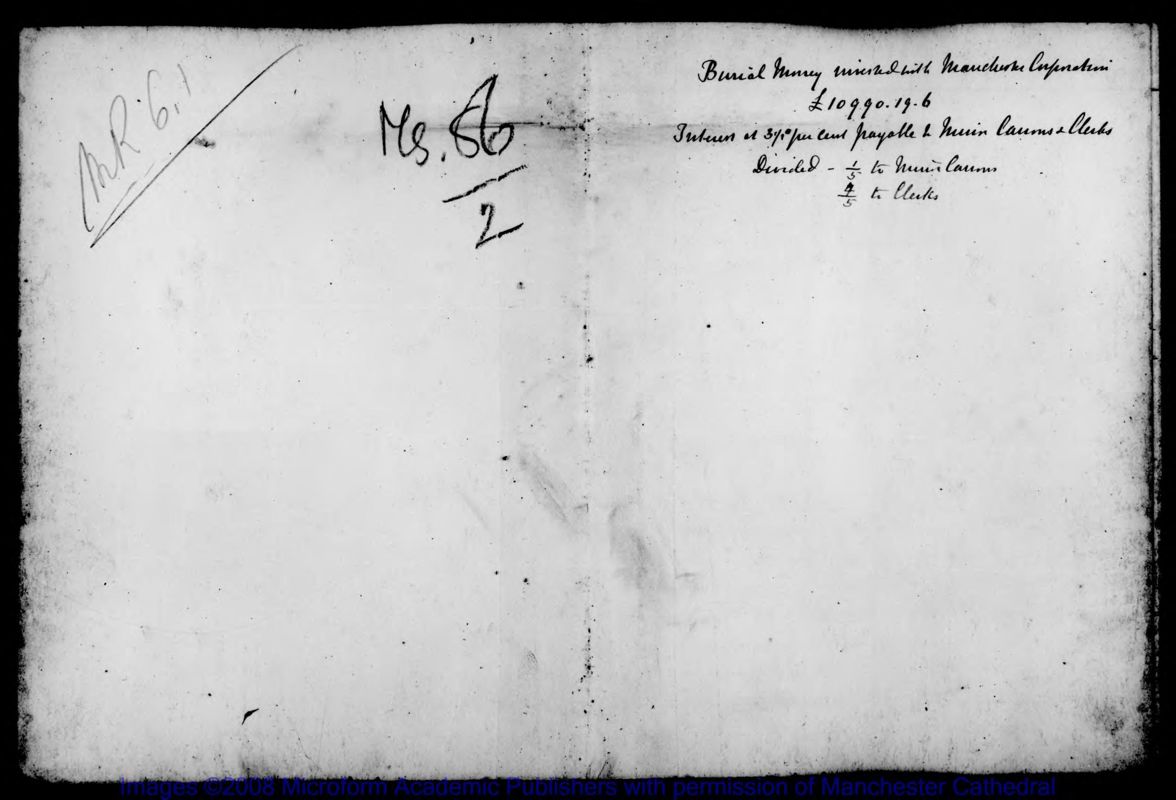 MR. 6.1
Ms. 86
2
Burial Money invested with Manchester Corporation
£10990.19.6
Interest at per cent payable to Minor Canons & Clerks
Divided - 1/5 to Minor Canons
4/5 to Clerks
Images ©2008 Microform Academic Publishers with permission of Manchester Cathedral